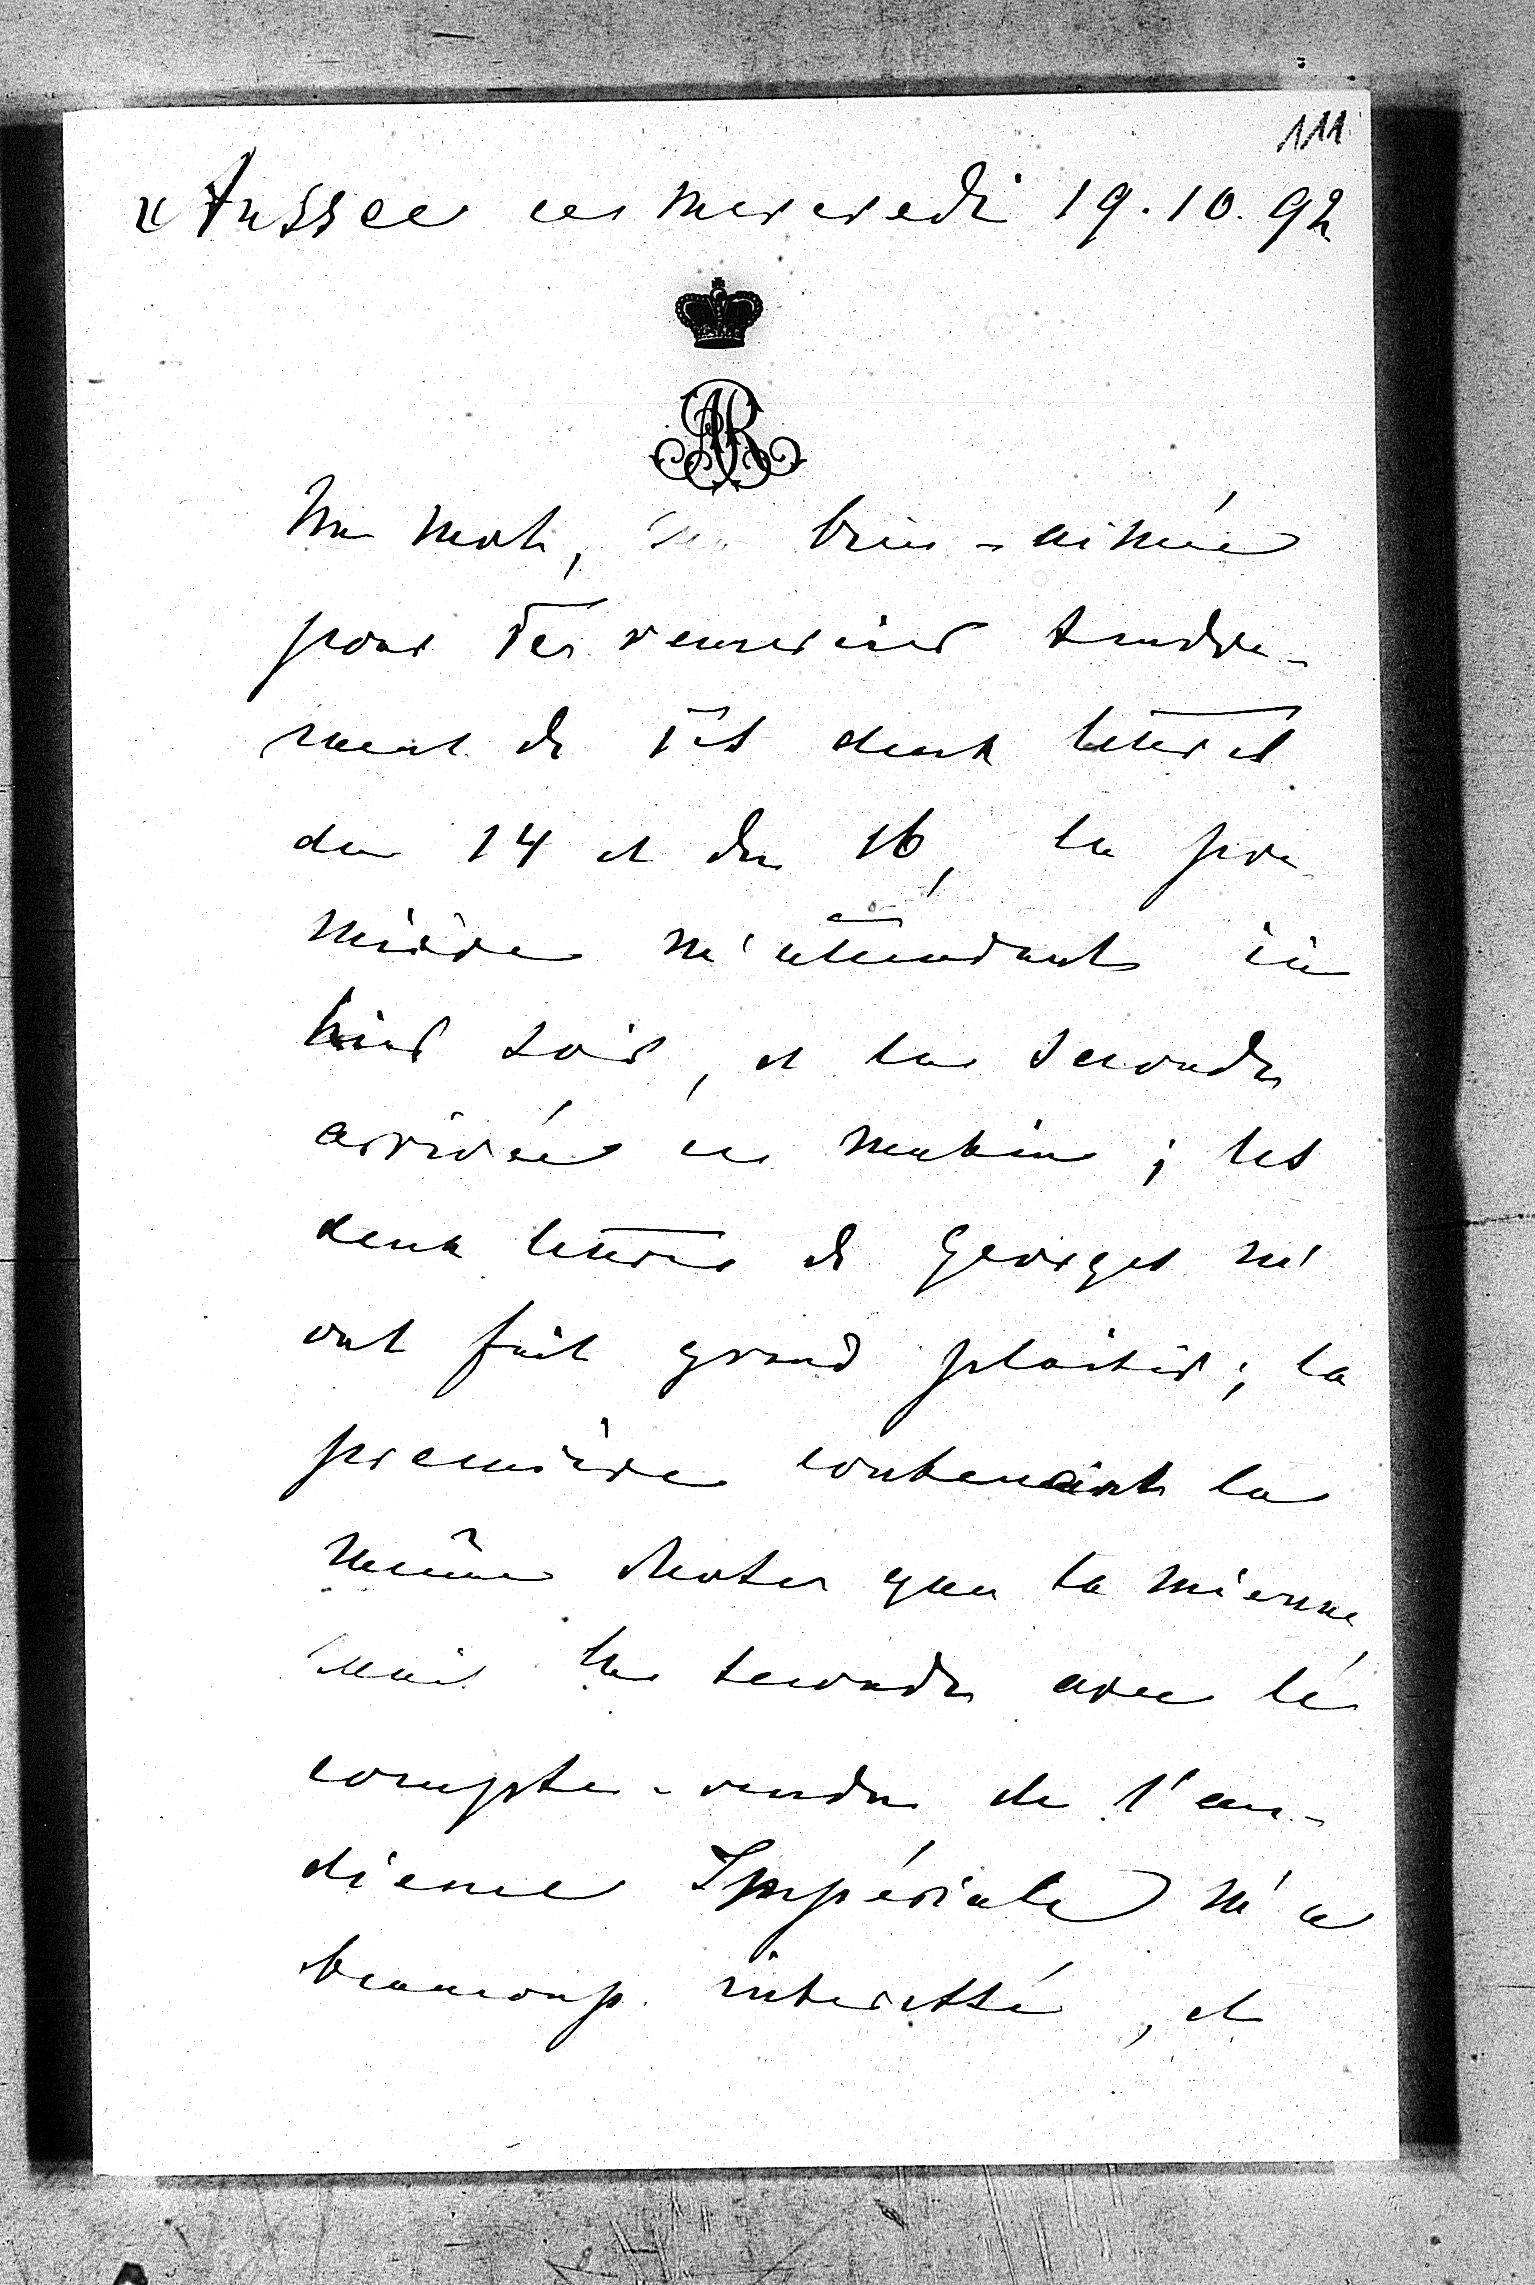 111
Aussee ce mercredi 19.10.92
AR
Un mot, bien-aimée
pour Te remercier tendre-
ment de Tes deux lettres
du 14 et du 16, la pre
mière m'attendant ici
hier soir, et la seconde
arrivée ce matin; les
deux lettres de Georges m'
ont fait grand plaisir; la
première contenait la
même chose que la mienne
mais la seconde avec le
compte-rendu de l'au-
dience Impériale m'a
beaucoup interessé, et